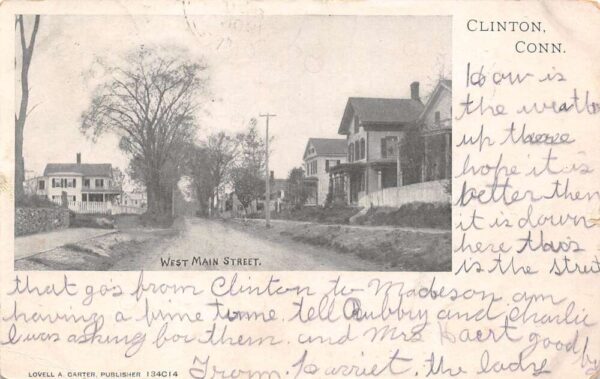 CLINTON,
CONN.
How is
the weather
up there
hope it is
better then
it is down
here this
is the street
WEST MAIN STREET.
that gos from Clinton to Madeson am
having a fine time. tell Rubby and Charlie
I was asking for them. and Mrs goodby
From. Harriet. the lady
LOVELL A. CARTER, PUBLISHER 134C14